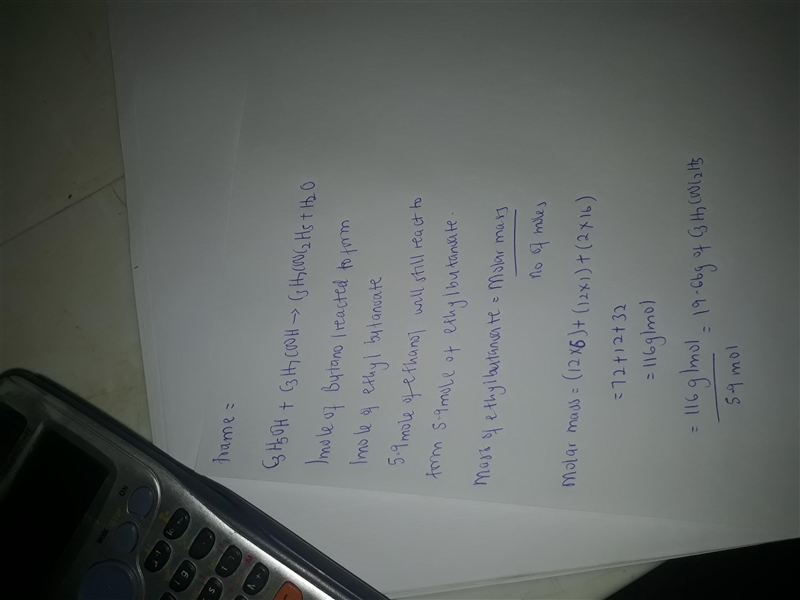 Name =
C3H5OH + C3H7COOH → C3H7COOC2H5 + H2O
1mole of Butanol reacted to form
1mole of ethyl butanoate
5.9mole of ethanol will still react to
form 5.9mole of ethylbutanoate.
Mass of ethylbutanoate = Molar mass
No of moles
Molar mass = (12x6) + (12x1) + (2x16)
= 72+12+32
= 116g/mol
= 116g/mol = 19.66g of C3H7COOC2H5
5.9mol
ON